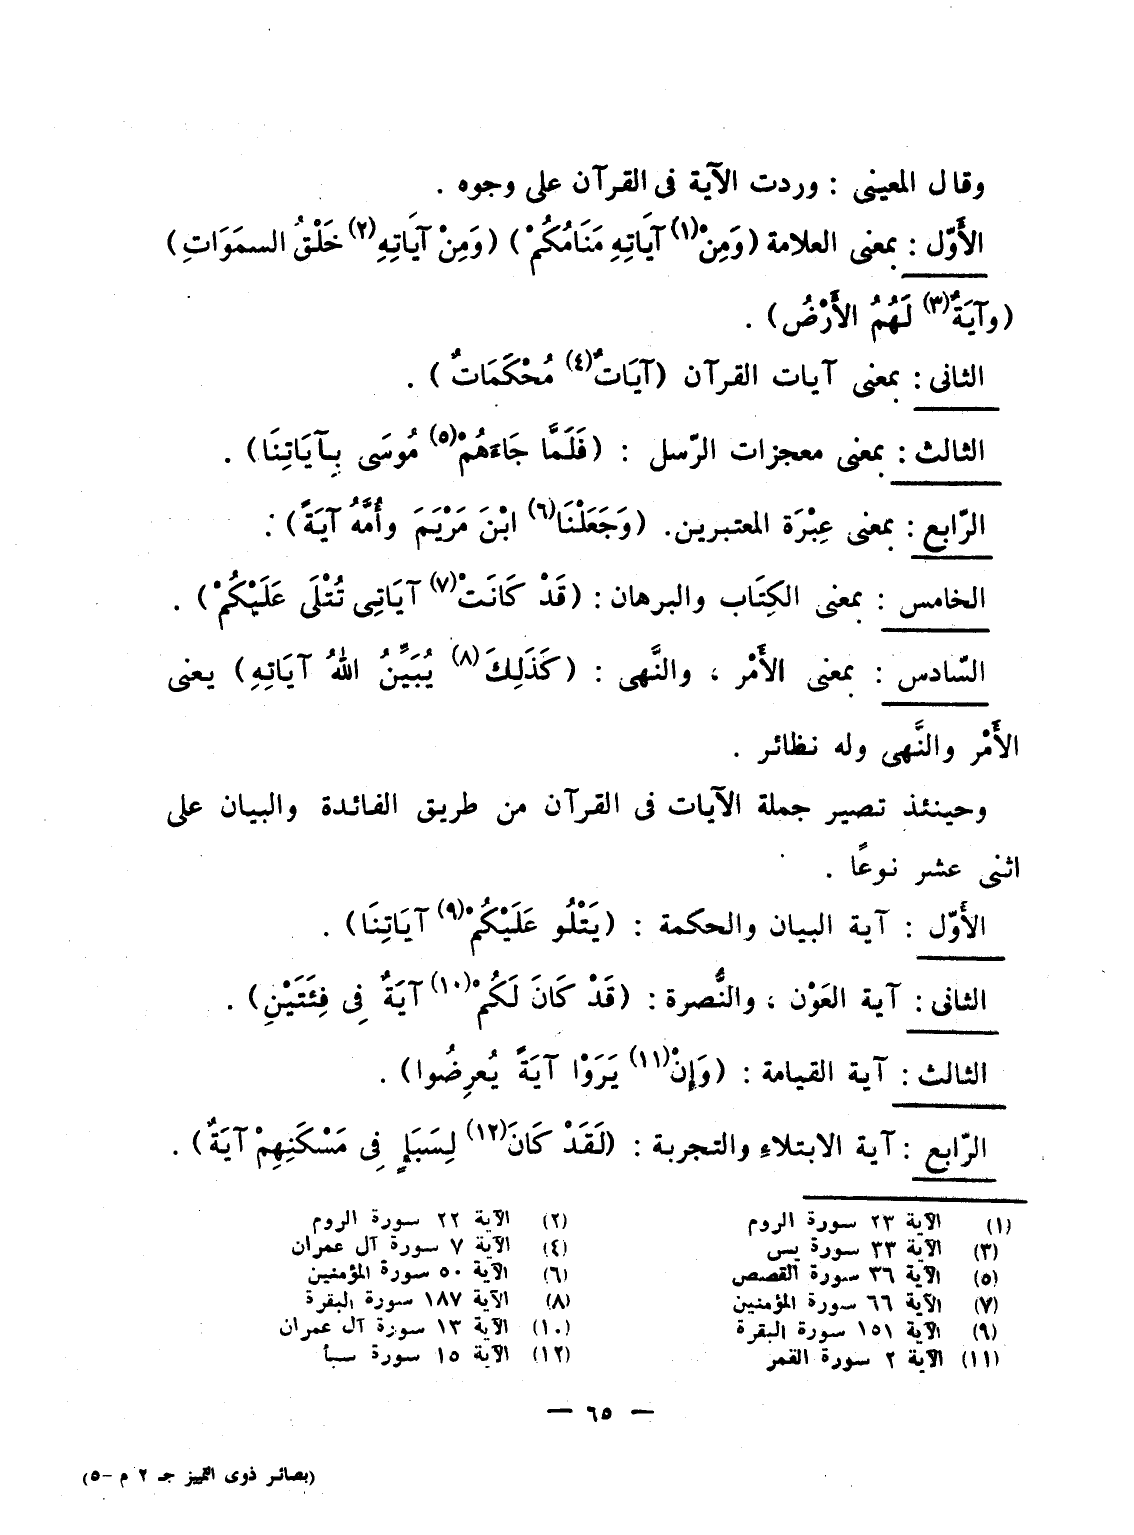 وقال المعينى : وردت الآية فى القرآن على وجوه .
الأَوّل : بمعنى العلامة (وَمِنْ(١) آيَاتِهِ مَنَامُكُمْ) (وَمِنْ آيَاتِهِ(٢) خَلْقُ السمَوَاتِ)
(وآيَةٌ(٣) لَهُمُ الأَرْضُ) .
الثانى : بمعنى آيات القرآن (آيَاتٌ(٤) مُحْكَمَاتٌ) .
الثالث : بمعنى معجزات الرّسل : (فَلَمَّا جَاءَهُمْ(٥) مُوسَى بِآيَاتِنَا) .
الرّابع : بمعنى عِبْرَة المعتبرين. (وَجَعَلْنَا(٦) ابْنَ مَرْيَمَ وأُمَّهُ آيَةً) .
الخامس : بمعنى الكِتَاب والبرهان : (قَدْ كَانَتْ(٧) آيَاتِى تُتْلَى عَلَيْكُمْ) .
السّادس : بمعنى الأَمْر ، والنَّهى : (كَذَلِكَ(٨) يُبَيِّنُ اللهُ آيَاتِهِ) يعنى
الأَمْر والنَّهى وله نظائر .
وحينئذ تصير جملة الآيات فى القرآن من طريق الفائدة والبيان على
اثنى عشر نوعًا .
الأَوّل : آية البيان والحكمة : (يَتْلُو عَلَيْكُمْ(٩) آيَاتِنَا) .
الثانى : آية العَوْن ، والنُّصرة : (قَدْ كَانَ لَكُمْ(١٠) آيَةٌ فِى فِئَتَيْنِ) .
الثالث : آية القيامة : (وَإِنْ(١١) يَرَوْا آيَةً يُعرِضُوا) .
الرّابع : آية الابتلاء والتجربة : (لَقَدْ كَانَ(١٢) لِسَبَإٍ فِى مَسْكَنِهِمْ آيَةٌ) .
(١) الآية ٢٣ سورة الروم (٢) الآية ٢٢ سورة الروم
(٣) الآية ٣٣ سورة يس (٤) الآية ٧ سورة آل عمران
(٥) الآية ٣٦ سورة القصص (٦) الآية ٥٠ سورة المؤمنين
(٧) الآية ٦٦ سورة المؤمنين (٨) الآية ١٨٧ سورة البقرة
(٩) الآية ١٥١ سورة البقرة (١٠) الآية ١٣ سورة آل عمران
(١١) الآية ٢ سورة القمر (١٢) الآية ١٥ سورة سبأ
— ٦٥ —
(بصائر ذوى التمييز جـ ٢ م -٥)